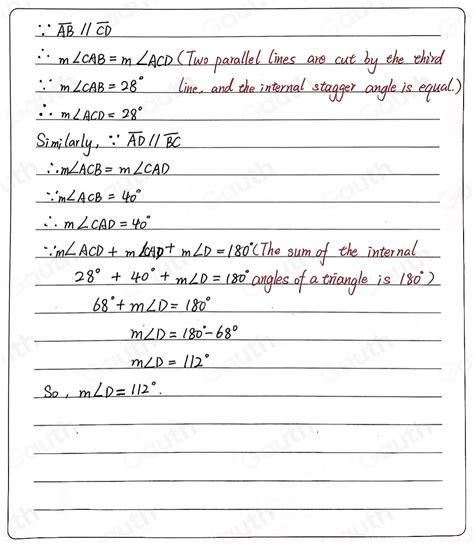 ∵ A̅B̅ // C̅D̅
∴ m∠CAB = m∠ACD (Two parallel lines are cut by the third
∵ m∠CAB = 28° line, and the internal stagger angle is equal.)
∴ m∠ACD = 28°
Similarly, ∵ A̅D̅ // B̅C̅
∴ m∠ACB = m∠CAD
∵ m∠ACB = 40°
∴ m∠CAD = 40°
∵ m∠ACD + m∠CAD + m∠D = 180° (The sum of the internal
28° + 40° + m∠D = 180° angles of a triangle is 180°)
68° + m∠D = 180°
m∠D = 180° - 68°
m∠D = 112°
So, m∠D = 112°.